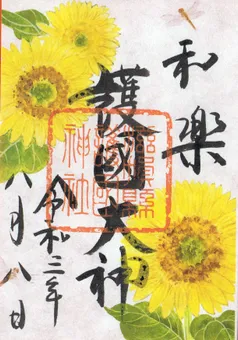 和樂
護國大神
神社
令和三年
八月八日